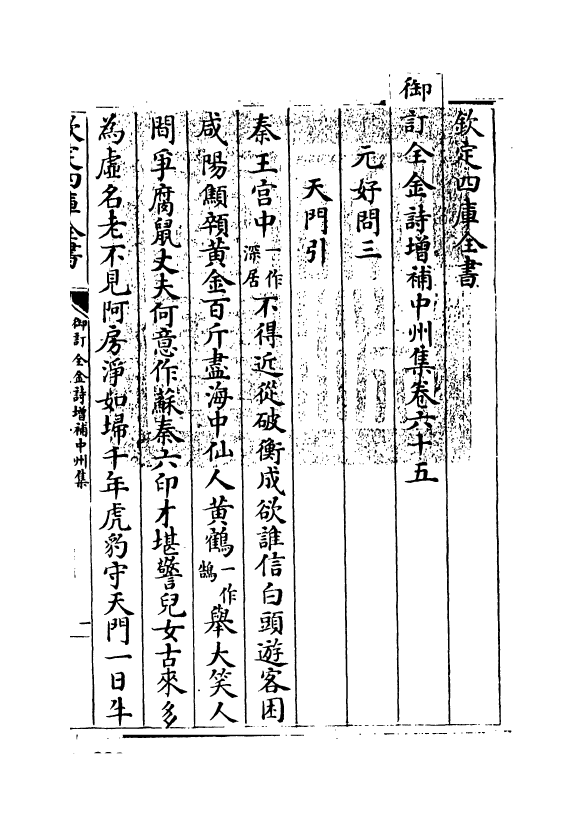 欽定四庫全書
御訂全金詩增補中州集卷六十五
元好問三
天門引
秦王宫中一作深居不得近從破衡成欲誰信白頭遊客困
咸陽顦顇黄金百斤盡海中仙人黄鶴一作鵠舉大笑人
間爭腐鼠丈夫何意作蘇秦六印才堪警兒女古來多
為虚名老不見阿房淨如埽千年虎豹守天門一日牛
欽定四庫全書
御訂全金詩增補中州集
一